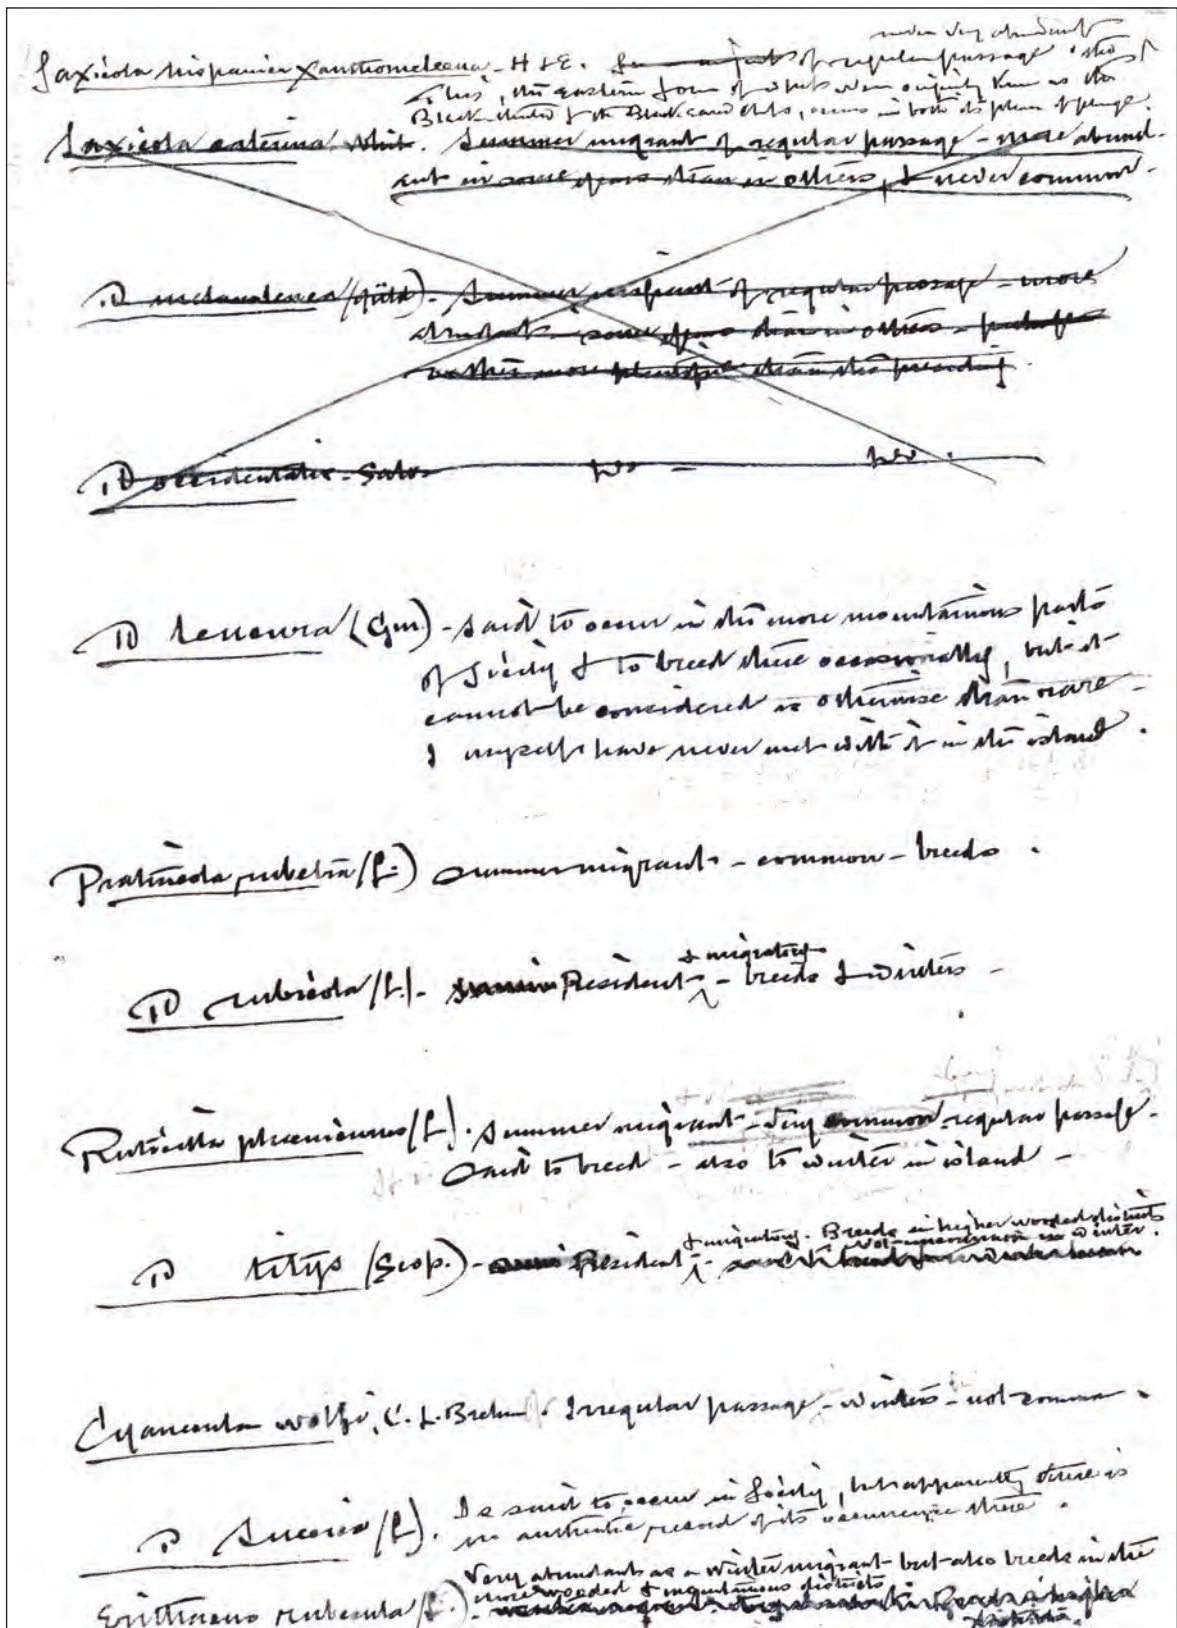 never very abundant
Saxicola hispanica xanthomelaena - H & E. of regular passage
This, the eastern form of what were originally known as the
Black-throated & the Black-eared chats, occurs in both its phases of plumage.
Saxicola Summer migrant of regular passage - more abund-
ant in some years than in others, & never common -
D melanoleuca (Güld) - Summer migrant of regular passage - more
abundant some years than in others - perhaps
rather more plentiful than the preceding.
D occidentalis - Salv. do - do.
D leucura (Gm.) - Said to occur in the more mountainous parts
of Sicily & to breed there occasionally, but it
cannot be considered as otherwise than rare -
I myself have never met with it in the island.
Pratincola rubetra (L.) Summer migrant - common - breeds.
& migratory
D rubicola (L.) - Resident - breeds & winters -
Ruticilla phoenicurus (L.). Summer migrant - Very common - regular passage -
Said to breed - also to winter in island -
& migratory. Breeds in higher wooded districts
Not uncommon in winter.
D titys (Scop.) - Resident -
Cyanecula wolfi, C. L. Brehm. Irregular passage - winters - not common.
D Suecica (L.). Is said to occur in Sicily, but apparently there is
no authentic record of its occurrence there.
Very abundant as a winter migrant - but also breeds in the
more wooded & mountainous districts.
Erithacus rubecula (L.) -